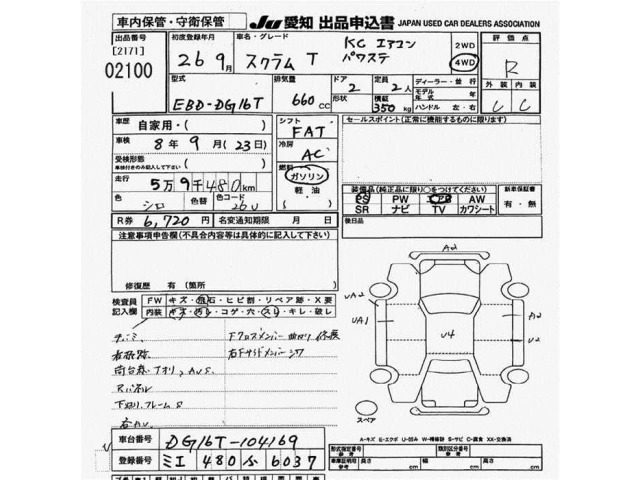 車内保管・守衛保管
JU 愛知 出品申込書 JAPAN USED CAR DEALERS ASSOCIATION
出品番号 [2171] 02100
初度登録年月 26 9月
車名・グレード スクラム T KC エアコン パワステ
2WD 4WD
評価点 R
外装 内装
型式 EBD-DG16T
排気量 660 cc
ドア 2 形状
定員 2人 積載 350 kg
ディーラー・並行
モデル年式 年
ハンドル 左・右
車歴 自家用・( )
車検 8年 9月 (23日)
受検形態 車検付きのみ記入して下さい ( )
走行 5万 9千 480 km
色 シロ 色替 色コード 26U
シフト FAT
冷房 AC
燃料 ガソリン 軽油 ( )
セールスポイント(正常に機能するものに限ります)
装備品(純正品に限り○をつけてください)
PS PW エアB AW
SR ナビ TV カワシート
新車保証書 有・無
R券 6,720 円 名変通知期限 月 日
後日品
注意事項申告欄(不具合内容等は具体的に記入して下さい)
修復歴 有 (箇所 )
検査員記入欄
FW キズ・飛石・ヒビ割・リペア跡・X要
内装 キズ・汚レ・コゲ・穴・スレ・キレ・破レ
Fクロスメンバー曲がり 修疾
右Fサイドメンバーシワ
Rパネル
A2
UA2
UA1
U4
A2
U2
スペア
A-キズ E-エクボ U-凹み W-補修跡 S-サビ C-腐食 XX-交換済
車台番号 DG16T-104169
登録番号 ミエ 480 6037
形式指定番号 類別区分番号
車庫証明用 長さ cm 幅 cm 高さ cm